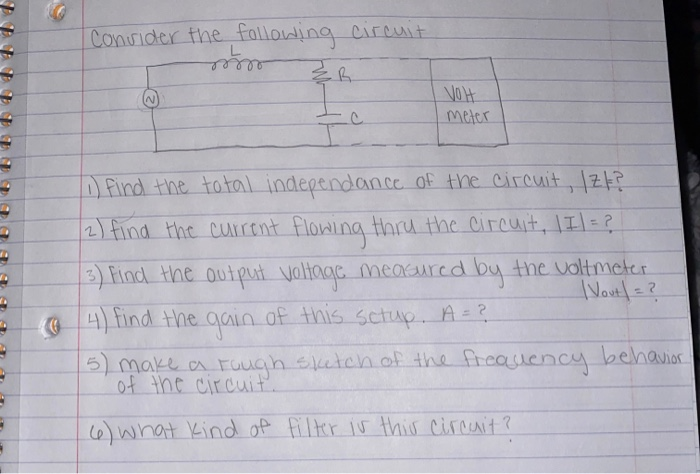 Consider the following circuit
L
R
N
Volt
meter
C
1) Find the total independance of the circuit, |Z|=?
2) find the current flowing thru the circuit, |I|=?
3) Find the output voltage measured by the voltmeter
|Vout|=?
4) find the gain of this setup. A=?
5) make a rough sketch of the frequency behavior
of the circuit.
6) what kind of filter is this circuit?